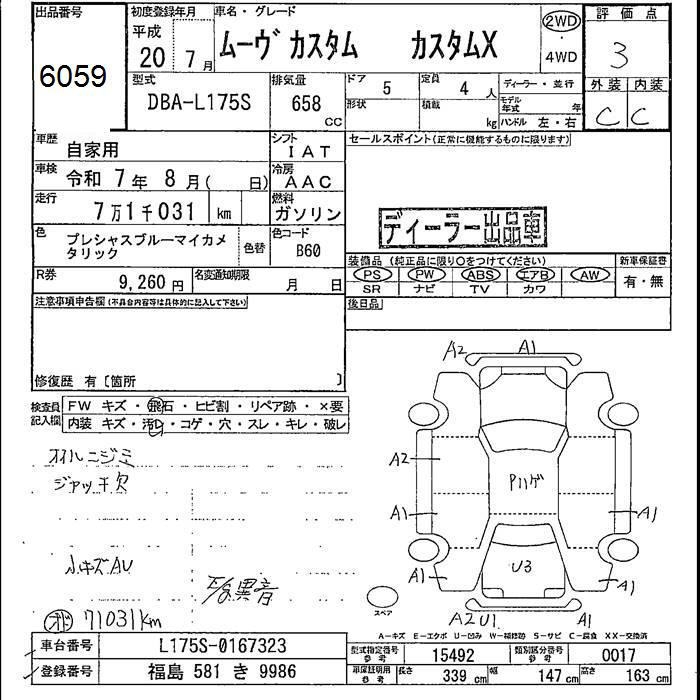 出品番号
6059
初度登録年月
平成
20 7月
車名・グレード
ムーヴ カスタム カスタムX
2WD
・
4WD
評価点
3
外装 内装
C C
型式
DBA-L175S
排気量
658
cc
ドア
5
定員
4 人
形状
積載
kg
ディーラー・並行
モデル年式 年
ハンドル 左・右
車歴
自家用
シフト
IAT
車検
令和 7年 8月( 日)
冷房
AAC
走行
7万1千031 km
燃料
ガソリン
色
プレシャスブルーマイカメタリック
色替
色コード
B60
R券
9,260円
名変通知期限
月 日
セールスポイント(正常に機能するものに限ります)
ディーラー出品車
装備品 (純正品に限り○をつけてください)
PS PW ABS エアB AW
SR ナビ TV カワ
新車保証書
有・無
後日品
注意事項申告欄(不具合内容等は具体的に記入して下さい)
修復歴 有〔箇所 〕
検査員記入欄
FW キズ・飛石・ヒビ割・リペア跡・×要
内装 キズ・汚レ・コゲ・穴・スレ・キレ・破レ
オイルニジミ
ジャッキ欠
小キズAU
E/g異音
オド 71031km
A2 A1
A2
A1
A1
A1
A1
Pハゲ
U3
スペア
A2U1 A1
A-キズ E-エクボ U-凹み W-補修跡 S-サビ C-腐食 XX-交換済
車台番号
L175S-0167323
登録番号
福島 581 き 9986
型式指定番号 参考
15492
類別区分番号 参考
0017
車庫証明用 参考
長さ 339 cm
幅 147 cm
高さ 163 cm